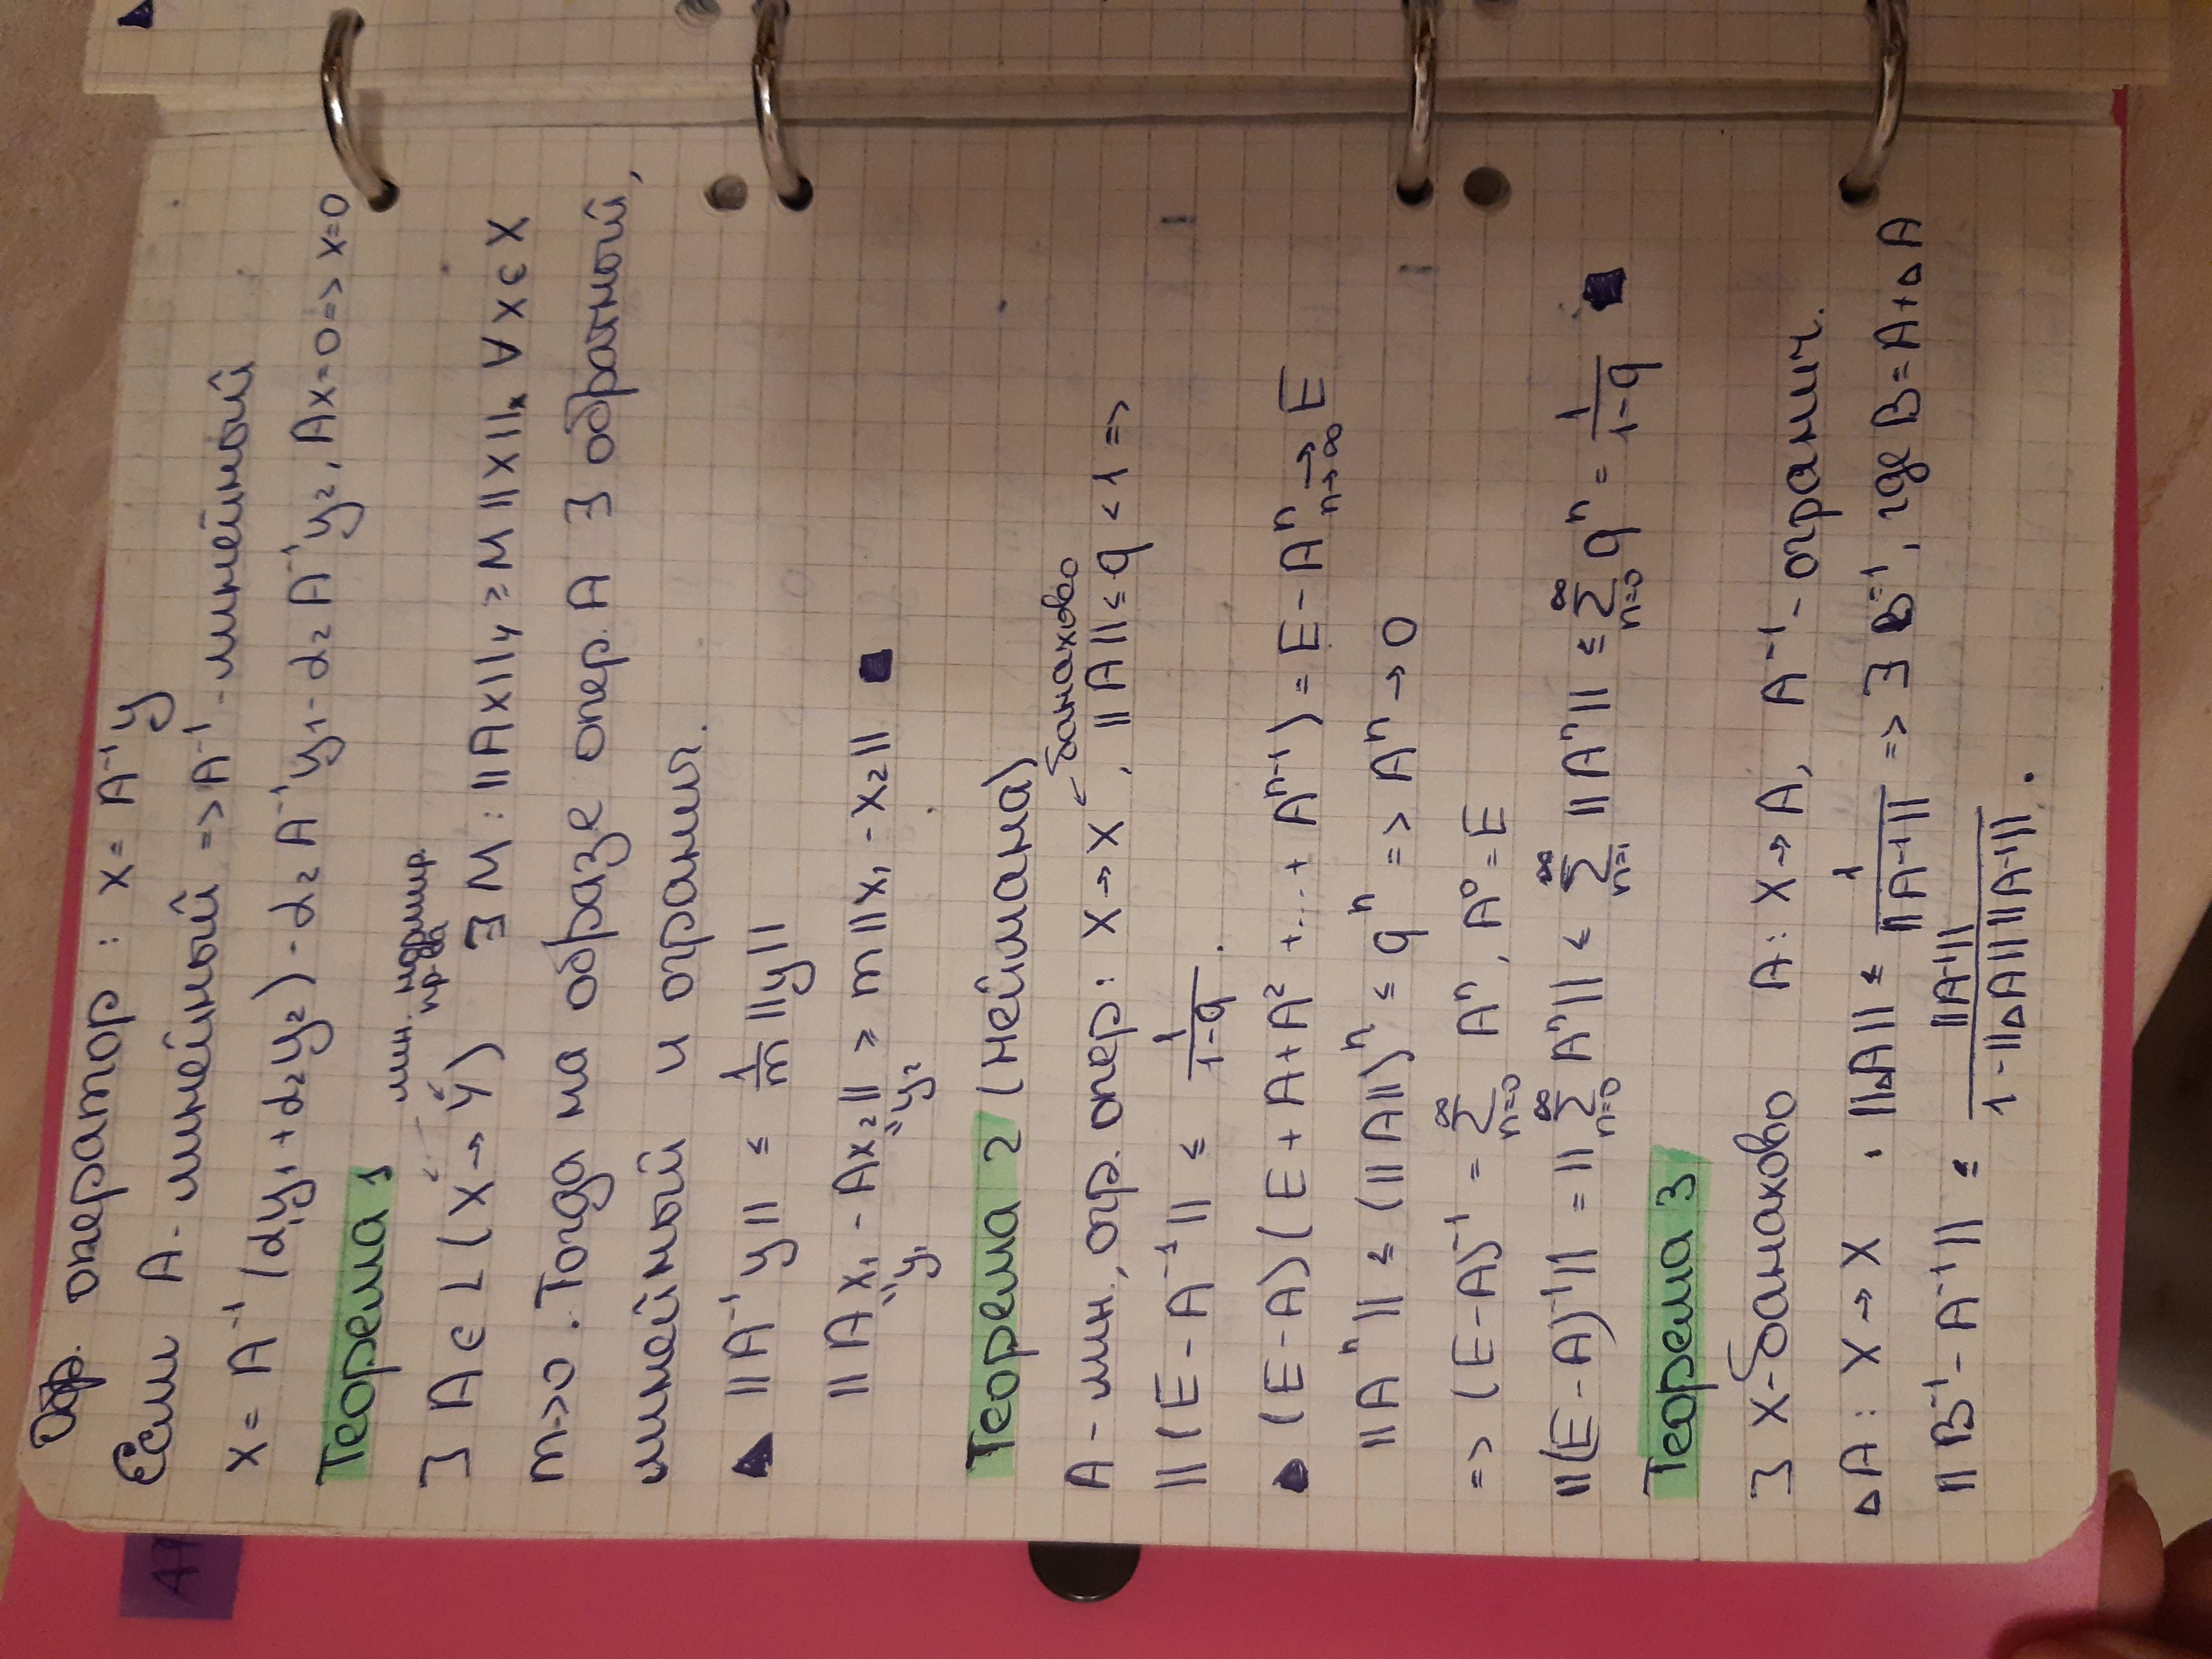 Обр. оператор : x = A⁻¹y
Если A - линейный => A⁻¹ - линейный
x = A⁻¹ (α₁y₁ + α₂y₂) - α₂ A⁻¹y₁ - α₂ A⁻¹y₂, Ax = 0 => x = 0
Теорема 1
лин. нормир. пр-ва
∃ A ∈ L (X → Y) ∃ M : ||Ax||_Y ≥ M ||x||ₓ ∀ x ∈ X
m > 0. Тогда на образе опер. A ∃ обратный,
линейный и огранич.
▲ ||A⁻¹y|| ≤ 1/m ||y||
||Ax₁ - Ax₂|| ≥ m ||x₁ - x₂|| ■
"y₁ "y₂
Теорема 2 (Неймана)
← банахово
A - лин., огр. опер : X → X , ||A|| ≤ q < 1 =>
||(E - A⁻¹|| ≤ 1/(1-q) .
▲ (E - A)(E + A + A² + ... + Aⁿ⁻¹) = E - Aⁿ →_{n→∞} E
||Aⁿ|| ≤ (||A||)ⁿ ≤ qⁿ => Aⁿ → 0
=> (E - A)⁻¹ = ∑_{n=0}^∞ Aⁿ, A⁰ = E
||(E - A)⁻¹|| = ||∑_{n=0}^∞ Aⁿ|| ≤ ∑_{n=1}^∞ ||Aⁿ|| ≤ ∑_{n=0}^∞ qⁿ = 1/(1-q) ■
Теорема 3
∃ X-банахово A : X → A, A⁻¹ - огранич.
△A : X → X , ||△A|| ≤ 1/||A⁻¹|| => ∃ B⁻¹, где B = A + △A
||B⁻¹ - A⁻¹|| ≤ ||A⁻¹|| / (1 - ||△A|| ||A⁻¹||) .